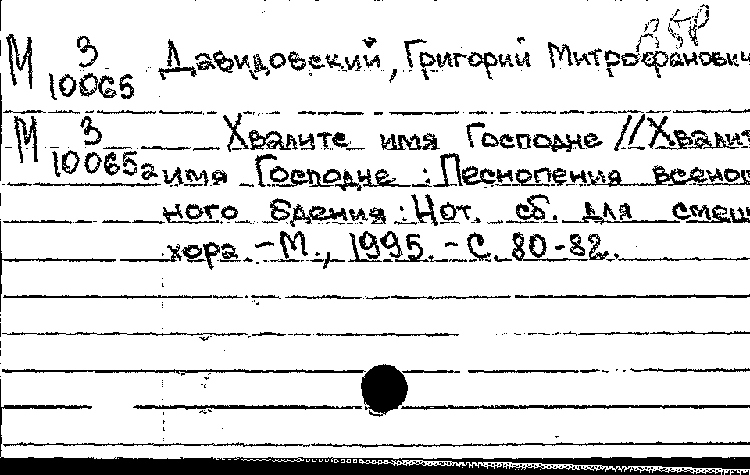 В5Р
М 3 Давидовский, Григорий Митрофанович
10065
М 3 Хвалите имя Господне // Хвалит
10065а имя Господне : Песнопения всенощ
ного бдения : Нот. сб. для смеш
хора. - М., 1995. - С. 80-82.